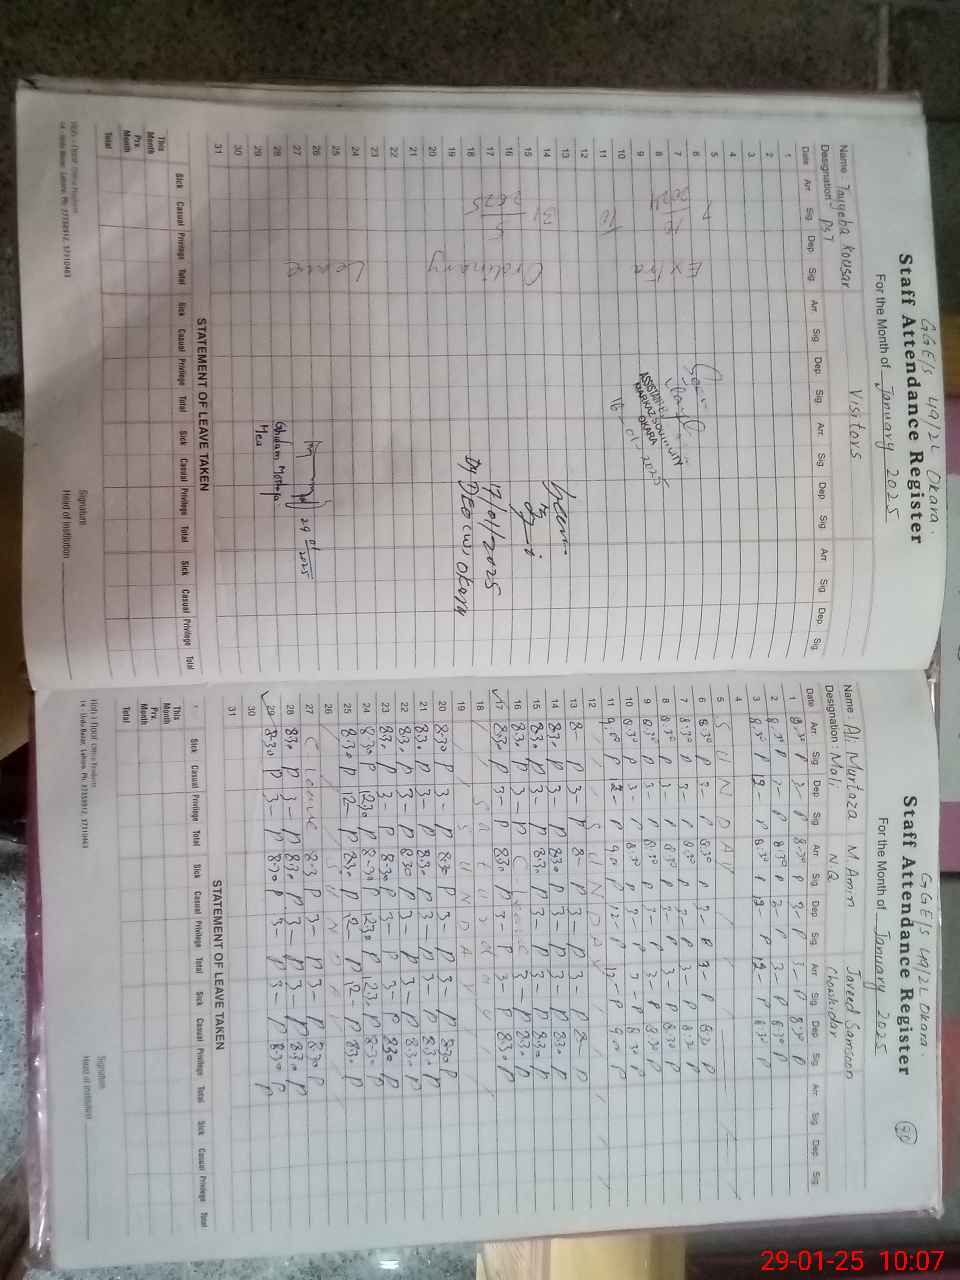 GGE/s 49/2L Okara.
Staff Attendance Register
For the Month of January 2025
Name: Tayyeba Kousar
Visitors
Designation: PST
Date Arr. Sig. Dep. Sig. Arr. Sig. Dep. Sig. Arr. Sig. Dep. Sig. Arr. Sig. Dep. Sig.
1
2
3
4
5
6
7
8
9
10
11
12
13
14
15
16
17
18
19
20
21
22
23
24
25
26
27
28
29
30
31
Extra Ordinary Leave
OKARA
16-01-2025
17/01/2025
Dy DEO (W) Okara
29 01/2025
Ghulam Mustafa
Mea
STATEMENT OF LEAVE TAKEN
Sick Casual Privilege Total Sick Casual Privilege Total Sick Casual Privilege Total Sick Casual Privilege Total
This Month
Prv. Month
Total
Signature
Head of Institution
GGE/s 49/2L Okara.
Staff Attendance Register
For the Month of January 2025
Name: Ali Murtaza M. Amin Javeed Samsoon
Designation: Mali N.Q Chowkidar
Date Arr. Sig. Dep. Sig. Arr. Sig. Dep. Sig. Arr. Sig. Dep. Sig. Arr. Sig. Dep. Sig.
1 8:30 P 3- P 8:30 P 3- P 3- P 8:30 P
2 8:30 P 3- P 8:30 P 3- P 3- P 8:30 P
3 8:30 P 12- P 8:30 P 12- P 12- P 8:30 P
4
5 SUNDAY
6 8:30 P 3- P 8:30 P 3- P 3- P 8:30 P
7 8:30 P 3- P 8:30 P 3- P 3- P 8:30 P
8 8:30 P 3- P 8:30 P 3- P 3- P 8:30 P
9 8:30 P 3- P 8:30 P 3- P 3- P 8:30 P
10 8:30 P 3- P 8:30 P 3- P 3- P 8:30 P
11 9:00 P 12- P 9:00 P 12- P 12- P 9:00 P
12 SUNDAY
13 8- P 3- P 8- P 3- P 3- P 8- P
14 830 P 3- P 830 P 3- P 3- P 830 P
15 830 P 3- P 830 P 3- P 3- P 830 P
16 830 P 3 P C Leave 3- P 830 P
17 830 P 3- P 830 P 3- P 3- P 830 P
18 Saturday
19 SUNDAY
20 830 P 3- P 830 P 3- P 3- P 830 P
21 830 P 3- P 830 P 3- P 3- P 830 P
22 830 P 3- P 830 P 3- P 3- P 830 P
23 830 P 3- P 830 P 3- P 3- P 830 P
24 830 P 1230 P 830 P 1230 P 1230 P 830 P
25 830 P 12- P 830 P 12- P 12- P 830 P
26 SUNDAY
27 C Leave 8-3 P 3- P 3- P 830 P
28 830 P 3- P 830 P 3- P 3- P 830 P
29 830 P 3- P 830 P 3- P 3- P 830 P
30
31
STATEMENT OF LEAVE TAKEN
Sick Casual Privilege Total Sick Casual Privilege Total Sick Casual Privilege Total Sick Casual Privilege Total
This Month
Prv. Month
Total
Signature
Head of Institution
29-01-25 10:07